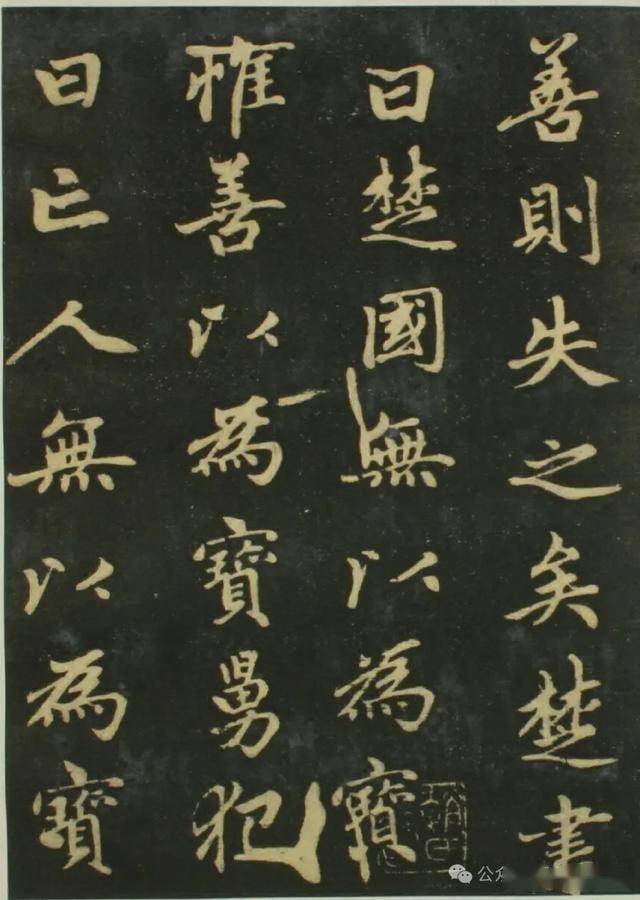 善則失之矣楚書
曰楚國無以為寶
惟善以為寶舅犯
曰亡人無以為寶
公众